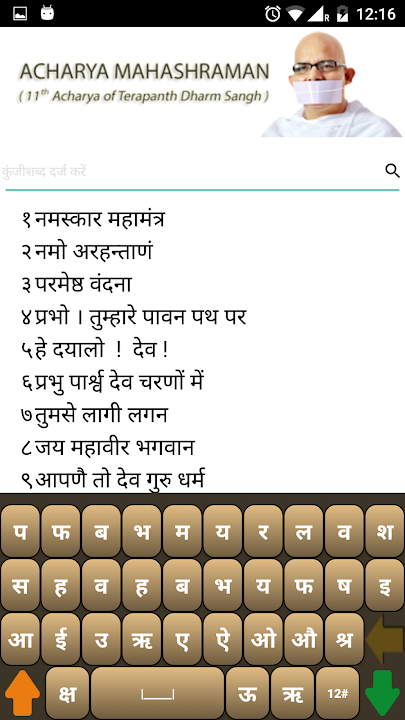 R
12:16
ACHARYA MAHASHRAMAN
( 11th Acharya of Terapanth Dharm Sangh )
कुंजीशब्द दर्ज करें
१ नमस्कार महामंत्र
२ नमो अरहन्ताणं
३ परमेष्ठ वंदना
४ प्रभो । तुम्हारे पावन पथ पर
५ हे दयालो ! देव !
६ प्रभु पार्श्व देव चरणों में
७ तुमसे लागी लगन
८ जय महावीर भगवान
९ आपणै तो देव गुरु धर्म
प फ ब भ म य र ल व श
स ह व ह ब भ य फ ष इ
आ ई उ ऋ ए ऐ ओ औ श्र
क्ष ऊ ऋ 12#